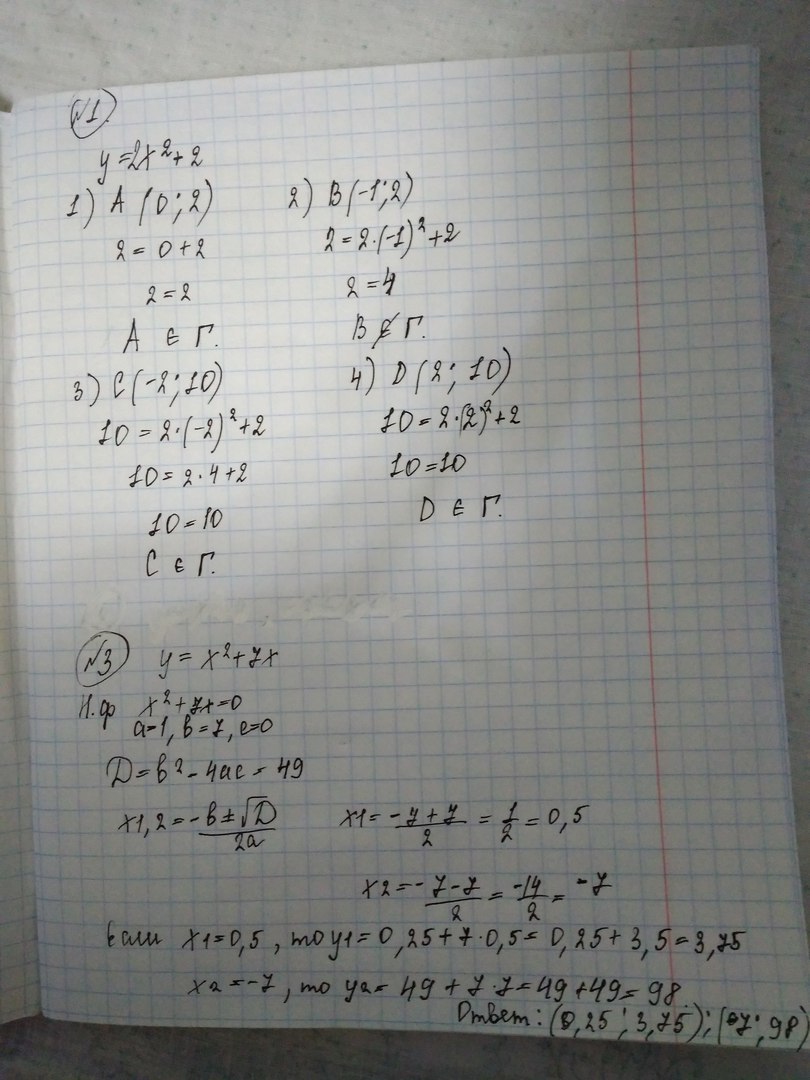 №1
y=2x²+2
1) A (0; 2)
2 = 0+2
2=2
A ∈ Г.
2) B(-1; 2)
2=2·(-1)²+2
2=4
B ∉ Г.
3) C(-2; 10)
10=2·(-2)²+2
10=2·4+2
10=10
C ∈ Г.
4) D (2; 10)
10=2·(2)²+2
10=10
D ∈ Г.
№3 y= x²+7x
Н.ф x²+7x=0
a=1, b=7, c=0
D=b²-4ac= 49
x1,2=-b±√D/2a
x1= -7+7/2 = 1/2 = 0,5
x2=-7-7/2 = -14/2 = -7
Если x1=0,5, то y1=0,25+7·0,5= 0,25+3,5=3,75
x2=-7, то y2= 49+7·7=49+49= 98
Ответ: (0,25; 3,75); (-7; 98)